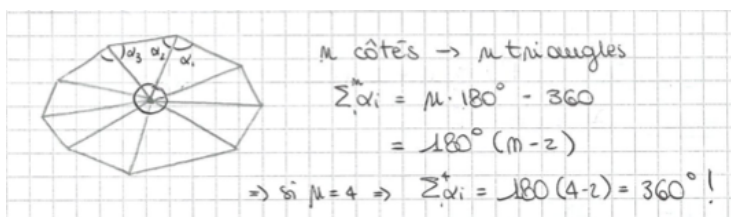 α₃ α₂ α₁
n côtés → n triangles
∑ⁿαᵢ = n·180° - 360
= 180° (n-2)
=> si n=4 => ∑⁴αᵢ = 180(4-2) = 360° !